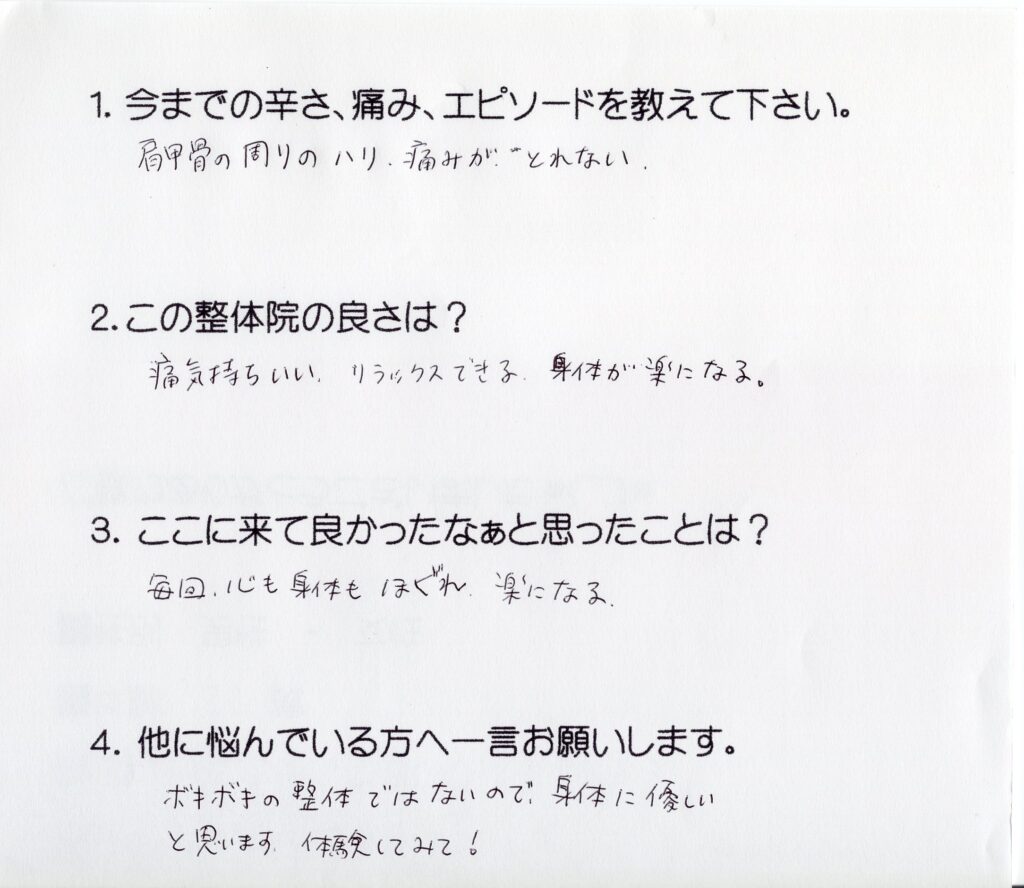 1. 今までの辛さ、痛み、エピソードを教えて下さい。
肩甲骨の周りのハリ、痛みが、とれない.
2. この整体院の良さは？
痛気持ちいい、リラックスできる、身体が楽になる。
3. ここに来て良かったなぁと思ったことは？
毎回、心も身体もほぐれ、楽になる.
4. 他に悩んでいる方へ一言お願いします。
ボキボキの整体ではないので、身体に優しい
と思います、体験してみて！